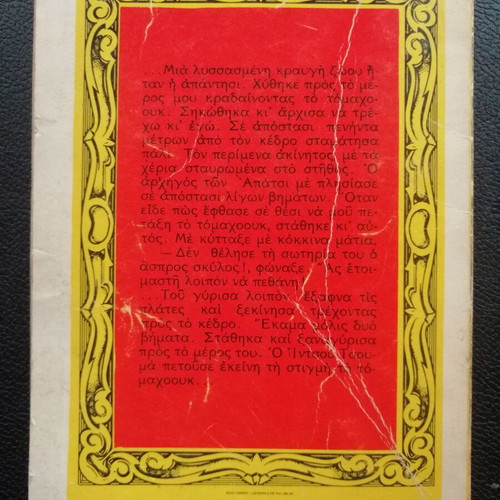 ...Μιὰ λυσσασμένη κραυγὴ ζώου ἤ-
ταν ἡ ἀπάντησι. Χύθηκε πρὸς τὸ μέ-
ρος μου κραδαίνοντας τὸ τόμαχο-
ουκ. Σηκώθηκα κι' ἄρχισα νὰ τρέ-
χω κι' ἐγώ. Σὲ ἀπόστασι πενήντα
μέτρων ἀπὸ τὸν κέδρο σταμάτησα
πάλι. Τὸν περίμενα ἀκίνητος μὲ τὰ
χέρια σταυρωμένα στὸ στῆθος. Ὁ
ἀρχηγὸς τῶν Ἀπάτσι μὲ πλησίασε
σὲ ἀπόστασι λίγων βημάτων. Ὅταν
εἶδε πὼς ἔφθασε σὲ θέσι νὰ μοῦ πε-
τάξη τὸ τόμαχοουκ, στάθηκε κι' αὐ-
τός. Μὲ κύτταξε μὲ κόκκινα μάτια,
— Δὲν θέλησε τὴ σωτηρία του ὁ
ἄσπρος σκύλος!, φώναξε. Ἂς ἑτοι-
μαστῆ λοιπὸν νὰ πεθάνη!
...Τοῦ γύρισα λοιπὸν ἔξαφνα τὶς
πλάτες καὶ ξεκίνησα τρέχοντας
πρὸς τὸ κέδρο. Ἔκαμα μόλις δυὸ
βήματα. Στάθηκα καὶ ξαναγύρισα
πρὸς τὸ μέρος του. Ὁ Ἰντσοῦ Τσου-
μὰ πετοῦσε ἐκείνη τὴ στιγμὴ τὸ τό-
μαχοουκ...